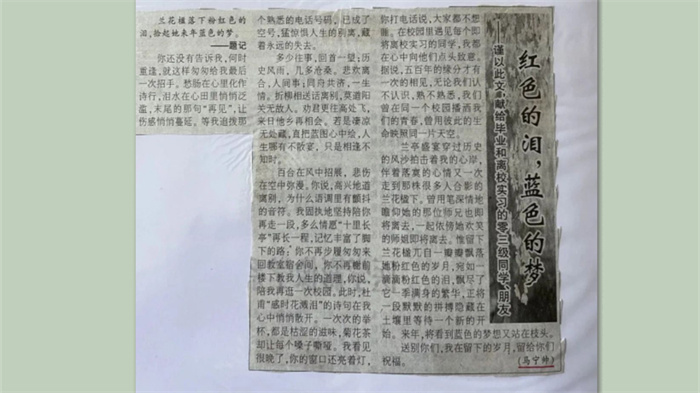 红色的泪，蓝色的梦
——谨以此文献给毕业和离校实习的零三级同学、朋友
兰花楹落下粉红色的
泪，拾起她来年蓝色的梦。
——题记
你还没有告诉我，何时
重逢，就这样匆匆给我最后
一次招手。愁肠在心里化作
诗行，泪水在心田里悄悄泛
滥，末尾的那句“再见”，让
伤感悄悄蔓延。等我追拨那
个熟悉的电话号码，已成了
空号，猛惊惧人生的别离，藏
着永远的失去。
多少往事，回首一望；历
史风雨，几多沧桑。悲欢离
合，人间事；同舟共济，一生
情。折柳相送话离别，莫道阳
关无故人。劝君更往高处飞，
来日他乡再相会。若是凄凉
无处藏，直把蓝图心中绘，人
生哪有不散宴，只是相逢不
知时。
百合在风中招展，悲伤
在空中弥漫。你说，高兴地道
离别，为什么语调里有颤抖
的音符。我固执地坚持陪你
再走一段，多么情愿“十里长
亭”再长一程，记忆丰富了脚
下的路；你不再步履匆匆来
回教室宿舍间，你不再榭前
楼下教我人生的道理，你说，
陪我再逛一次校园。此时，杜
甫“感时花溅泪”的诗句在我
心中悄悄散开。一次次的举
杯，都是枯涩的滋味，菊花茶
却让每个嗓子嘶哑。我看见
很晚了，你的窗口还亮着灯，
你打电话说，大家都不想
睡。在校园里遇见每个即
将离校实习的同学，我都
在心中向他们点头致意。
据说，五百年的缘分才有
一次的相见，无论我们认
不认识，熟不熟悉，我们
曾在同一个校园播洒我
们的青春，曾用彼此的生
命映照同一片天空。
兰亭盛宴穿过历史
的风沙拍击着我的心岸，
伴着落寞的心情又一次
走到那株很多人合影的
兰花楹下，曾用笔深情地
瞻仰她的那位师兄也即
将离去，一起依傍她欢笑
的师姐即将离去。惟留下
兰花楹兀自一瓣瓣飘落
她粉红色的岁月，宛如一
滴滴粉红色的泪，飘尽了
它一季满身的繁华，正将
一段默默的拼搏隐藏在
土壤里等待一个新的开
始。来年，将看到蓝色的梦想又站在枝头。
送别你们，我在留下的岁月，留给你们
祝福。
（马宁帅）